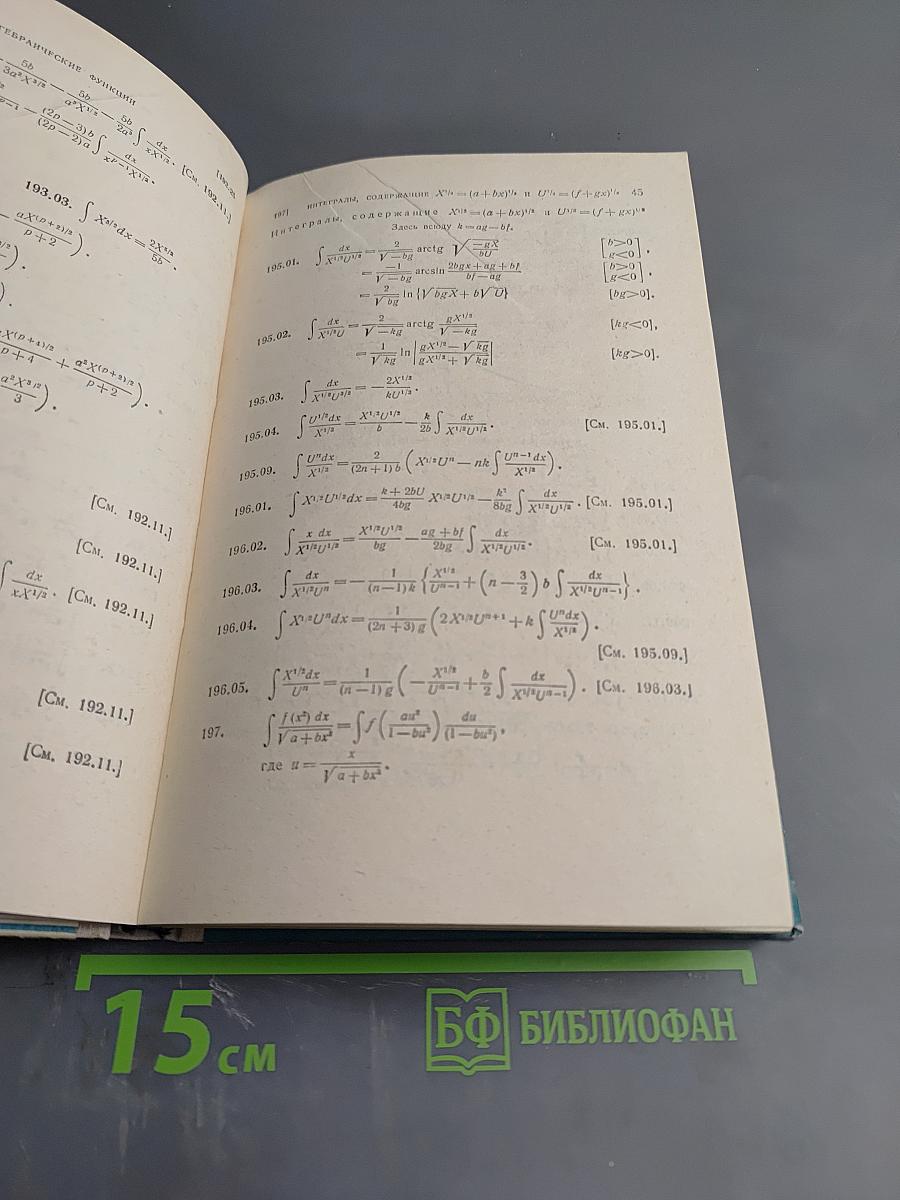 ГЕБРАИЧЕСКИЕ ФУНКЦИИ
5b/3a²X^{3/2} − 5b/a³X^{1/2} − 5b/2a³ ∫ dx/xX^{1/2}. [См. 192.11.]
− (2p−3)b/(2p−2)a ∫ dx/x^{p−1}X^{1/2}.
193.03. ∫ X^{3/2}dx = 2X^{5/2}/5b.
− aX^{(p+2)/2}/p+2).
X^{(p+4)/2}/p+4 + a²X^{(p+2)/2}/p+2).
a²X^{3/2}/3).
[См. 192.11.]
[См. 192.11.]
∫ dx/xX^{1/2}. [См. 192.11.]
[См. 192.11.]
[См. 192.11.]
197] ИНТЕГРАЛЫ, СОДЕРЖАЩИЕ X^{1/2} = (a+bx)^{1/2} и U^{1/2} = (f+gx)^{1/2} 45
Интегралы, содержащие X^{1/2} = (a+bx)^{1/2} и U^{1/2} = (f+gx)^{1/2}
Здесь всюду k = ag − bf.
195.01. ∫ dx/X^{1/2}U^{1/2} = 2/√−bg arctg √−gX/bU [b>0 g<0],
= −1/√−bg arcsin 2bgx+ag+bf/bf−ag [b>0 g<0],
= 2/√bg ln {√bgX + b√U} [bg>0].
195.02. ∫ dx/X^{1/2}U = 2/√−kg arctg gX^{1/2}/√−kg [kg<0],
= 1/√kg ln |gX^{1/2} − √kg/gX^{1/2} + √kg| [kg>0].
195.03. ∫ dx/X^{1/2}U^{3/2} = − 2X^{1/2}/kU^{1/2}.
195.04. ∫ U^{1/2}dx/X^{1/2} = X^{1/2}U^{1/2}/b − k/2b ∫ dx/X^{1/2}U^{1/2}. [См. 195.01.]
195.09. ∫ Uⁿdx/X^{1/2} = 2/(2n+1)b (X^{1/2}Uⁿ − nk ∫ U^{n−1}dx/X^{1/2}).
196.01. ∫ X^{1/2}U^{1/2}dx = k+2bU/4bg X^{1/2}U^{1/2} − k²/8bg ∫ dx/X^{1/2}U^{1/2}. [См. 195.01.]
196.02. ∫ x dx/X^{1/2}U^{1/2} = X^{1/2}U^{1/2}/bg − ag+bf/2bg ∫ dx/X^{1/2}U^{1/2}. [См. 195.01.]
196.03. ∫ dx/X^{1/2}Uⁿ = − 1/(n−1)k {X^{1/2}/U^{n−1} + (n − 3/2) b ∫ dx/X^{1/2}U^{n−1}}.
196.04. ∫ X^{1/2}Uⁿdx = 1/(2n+3)g (2X^{1/2}U^{n+1} + k ∫ Uⁿdx/X^{1/2}).
[См. 195.09.]
196.05. ∫ X^{1/2}dx/Uⁿ = 1/(n−1)g (− X^{1/2}/U^{n−1} + b/2 ∫ dx/X^{1/2}U^{n−1}). [См. 196.03.]
197. ∫ f(x²) dx/√a+bx² = ∫ f(au²/1−bu²) du/(1−bu²),
где u = x/√a+bx².
15 см
БФ БИБЛИОФАН